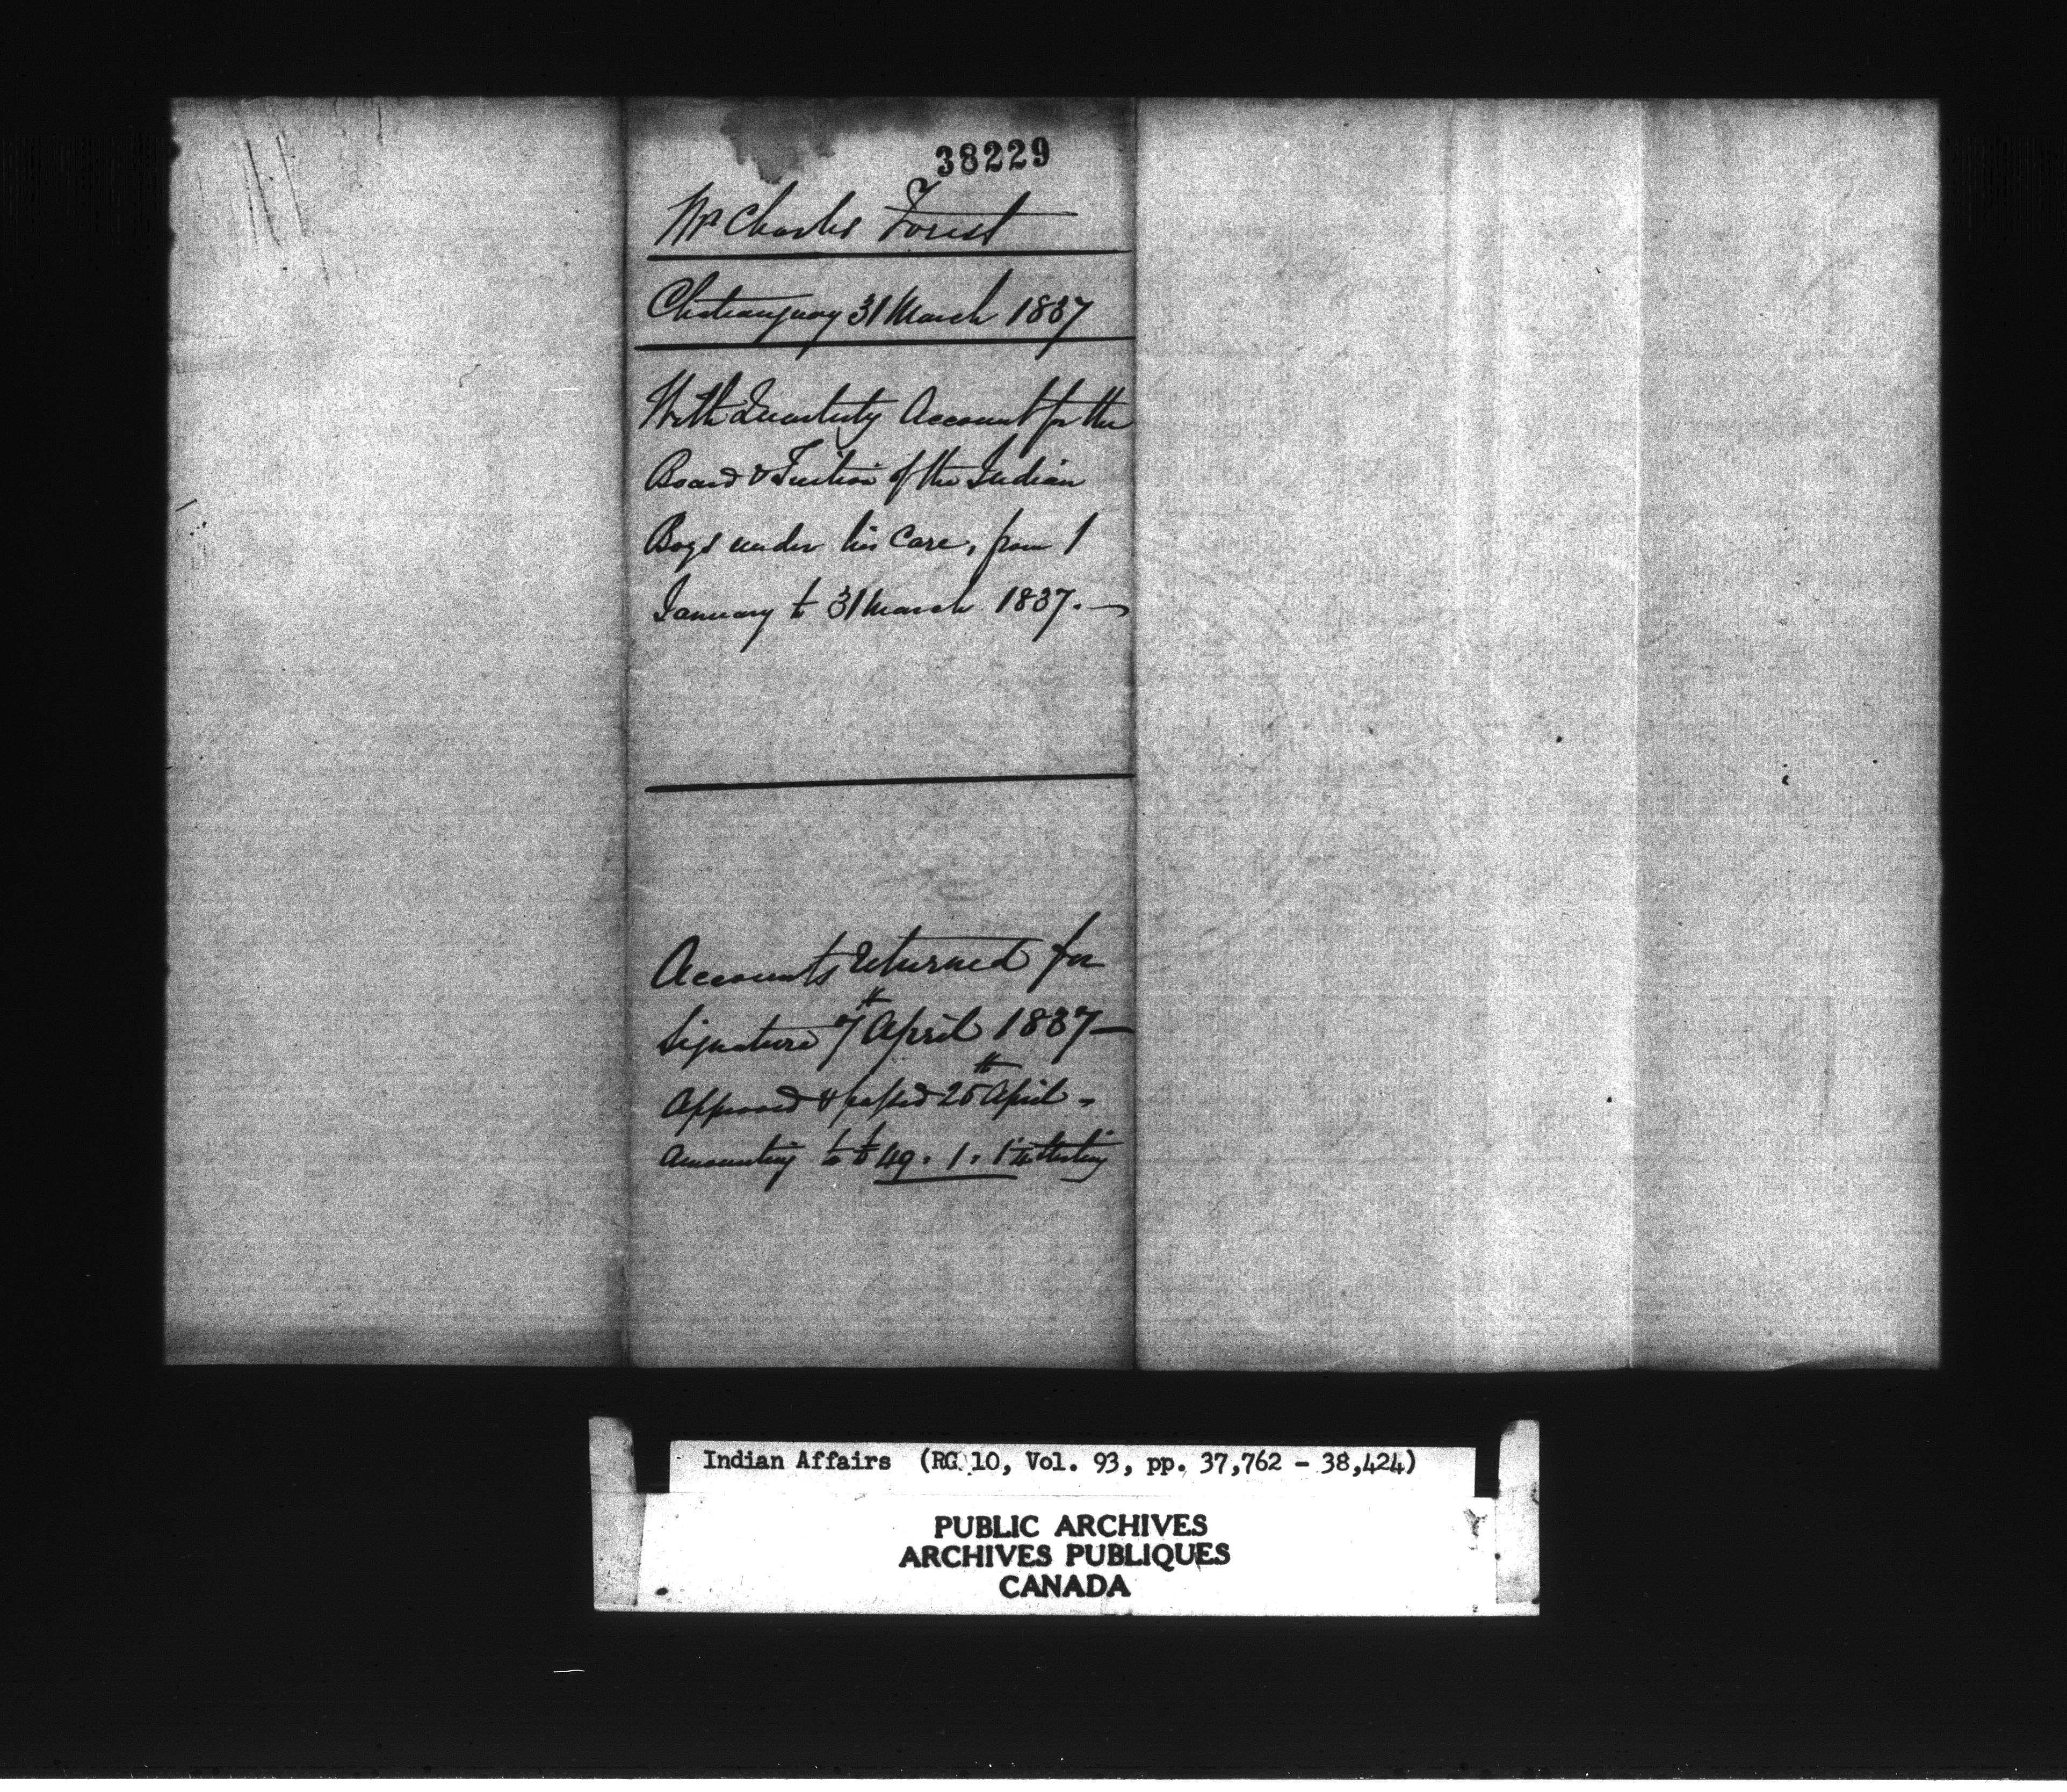 38229
Mr Charles Forest
Chateauguay 31 March 1837
With Quarterly Account for the
Board & Tuition of the Indian
Boys under his Care, from 1
January to 31 March 1837.—
Accounts returned for
Signature 7th April 1837—
Approved & passed 25th April -
Amounting to £49. 1. 1 Sterling
Indian Affairs (RG 10, Vol. 93, pp. 37,762 - 38,424)
PUBLIC ARCHIVES
ARCHIVES PUBLIQUES
CANADA